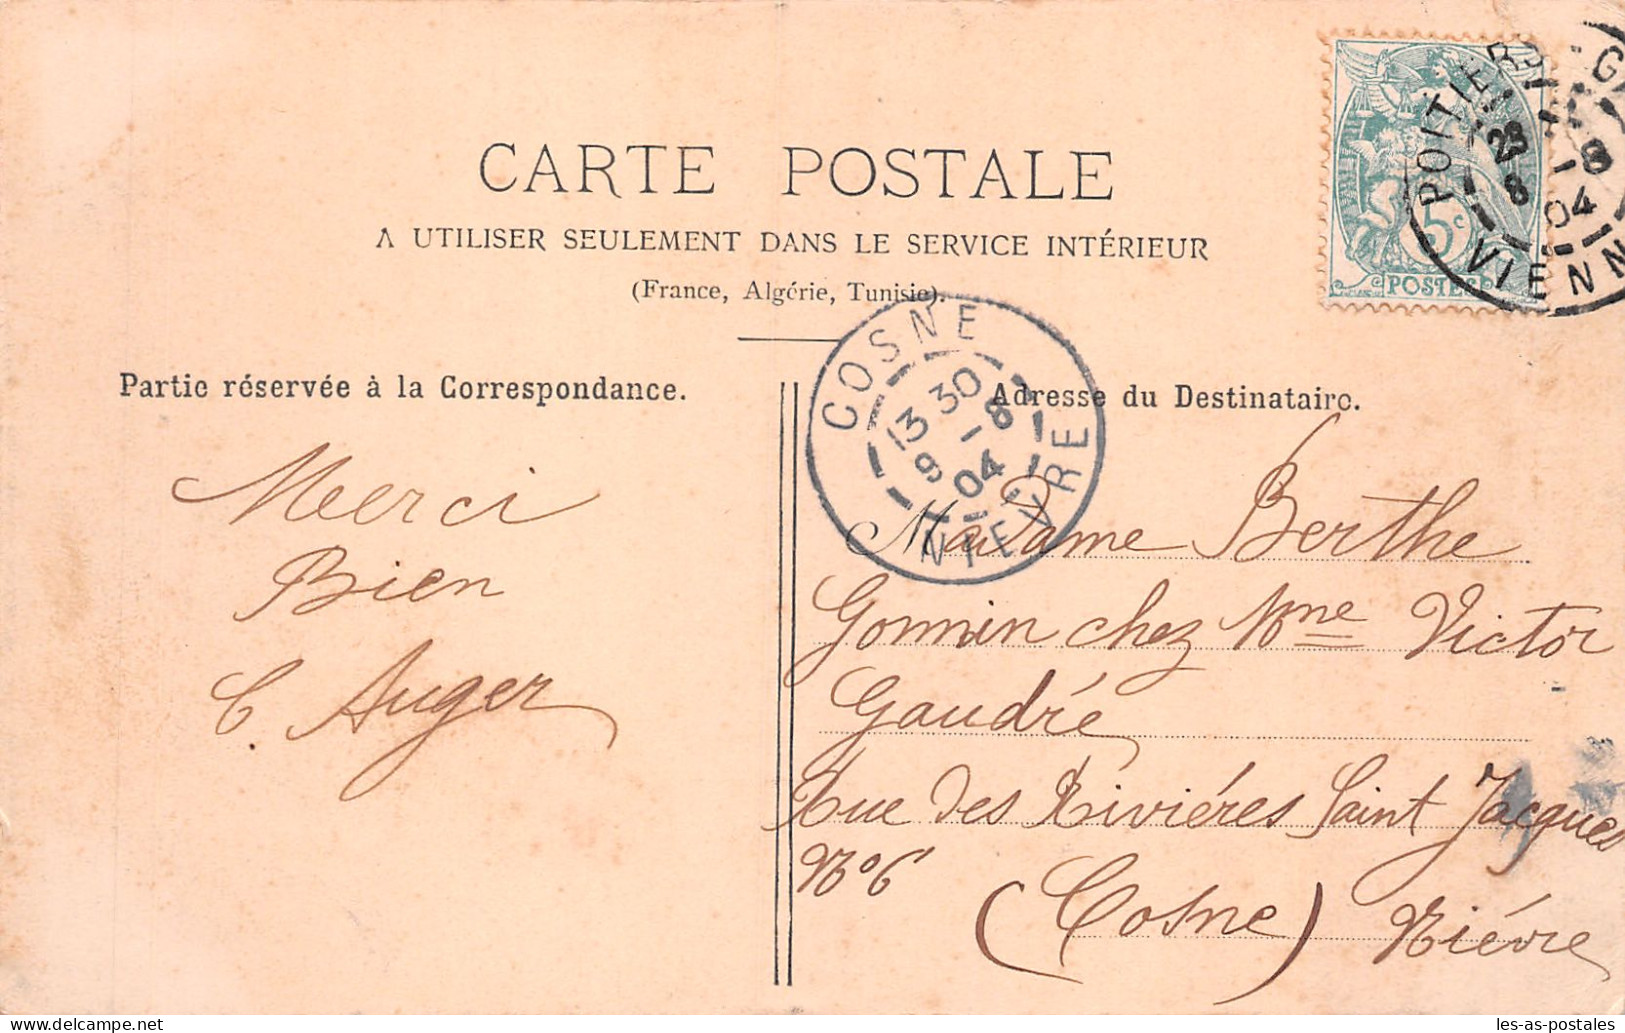 CARTE POSTALE
A UTILISER SEULEMENT DANS LE SERVICE INTÉRIEUR
(France, Algérie, Tunisie).
5c
POSTES
POITIERS
28
8
8
04
VIENN
COSNE
13 30
9 8
04
NIEVRE
Partie réservée à la Correspondance.
Merci
Bien
C. Auger
Adresse du Destinataire.
Madame Berthe
Gonnin chez Mme Victor
Gaudré
Rue des Riviéres Saint Jacques
No 6
(Cosne) Niévre
les-as-postales